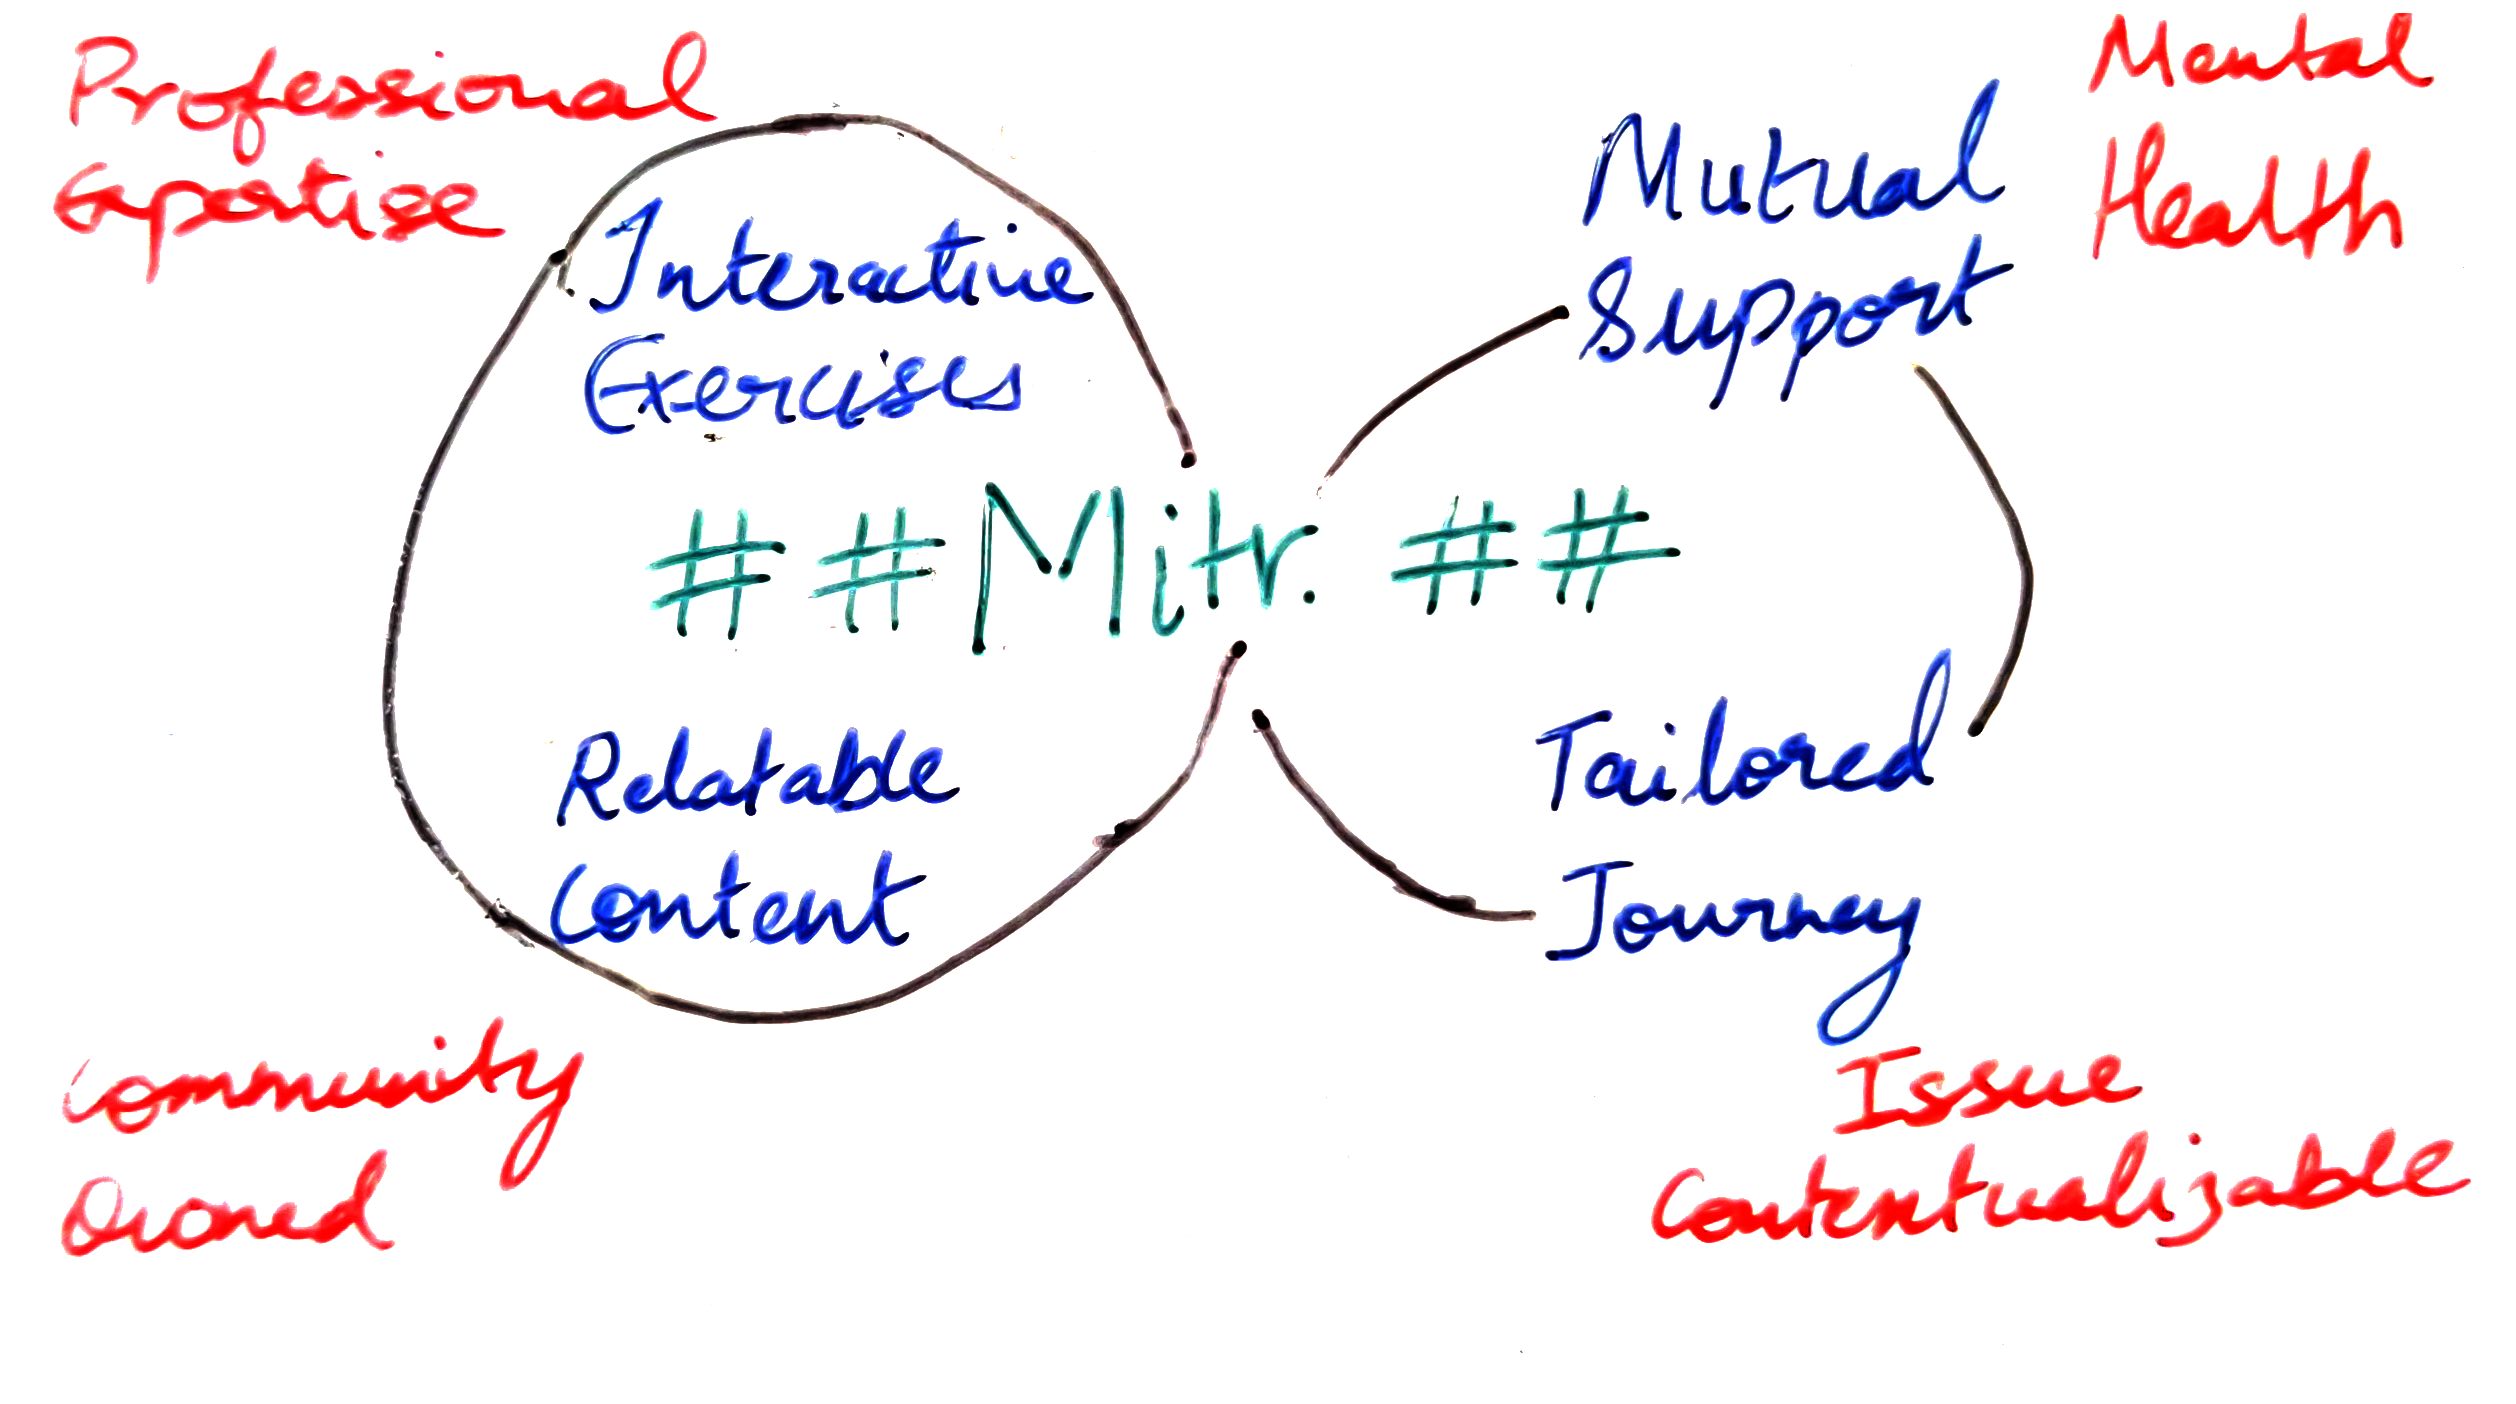 Professional
Expertise
Mental
Health
Interactive
Exercises
Mutual
Support
# # Mitr. # #
Relatable
Content
Tailored
Journey
Community
Owned
Issue
Contextualizable